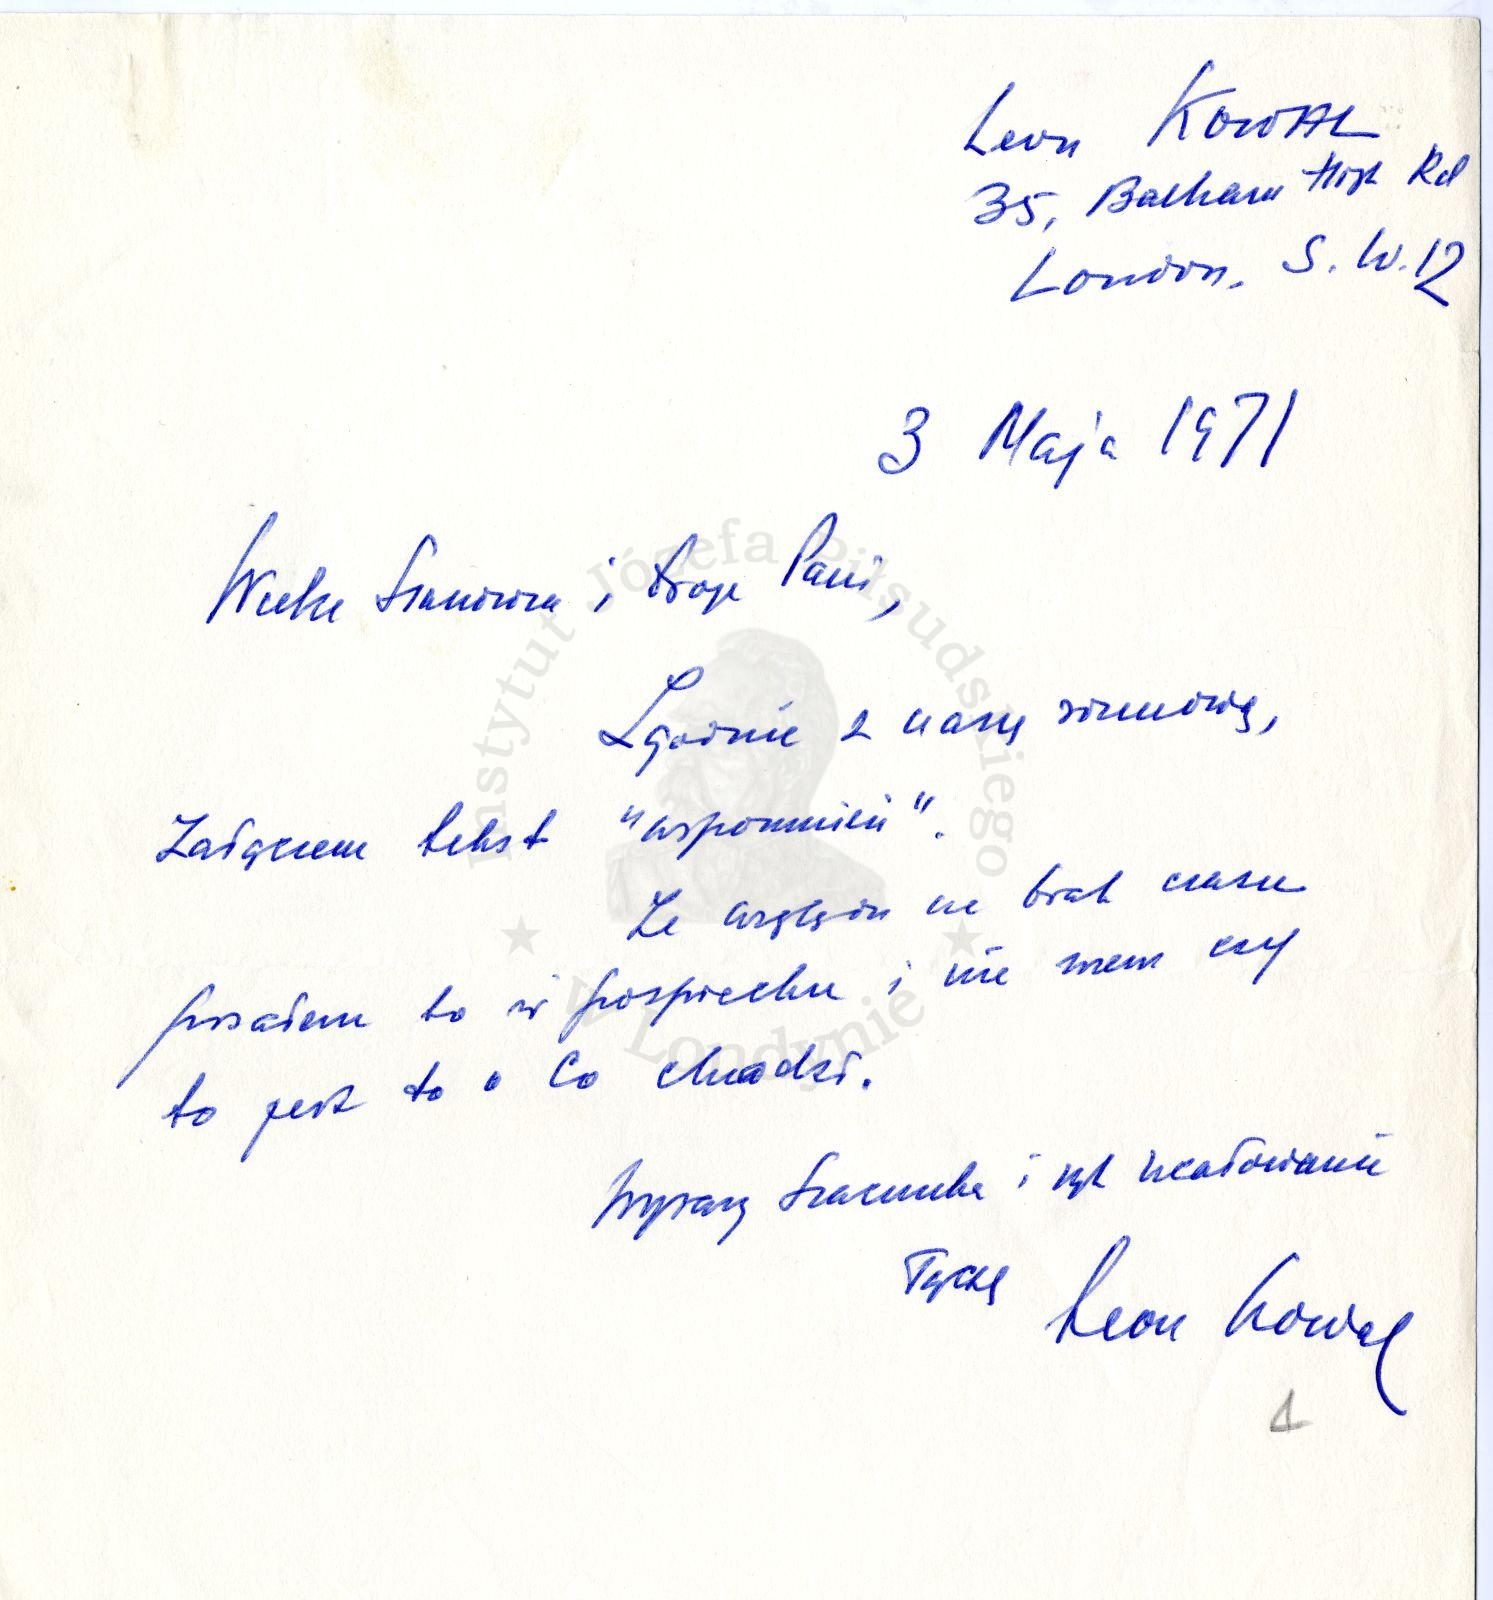 Leon KOWAL
35, Balham High Rd
London. S.W.12
3 Maja 1971
Wielce Szanowna i Droga Pani,
Zgodnie z naszą rozmową,
załączam tekst "wspomnień".
Ze względu na brak czasu
pisałem to w pospiechu i nie wiem czy
to jest to o co chodzi.
Wyrazy Szacunku i rąk ucałowanie
łączę Leon Kowal
1
Instytut Józefa Piłsudskiego
w Londynie